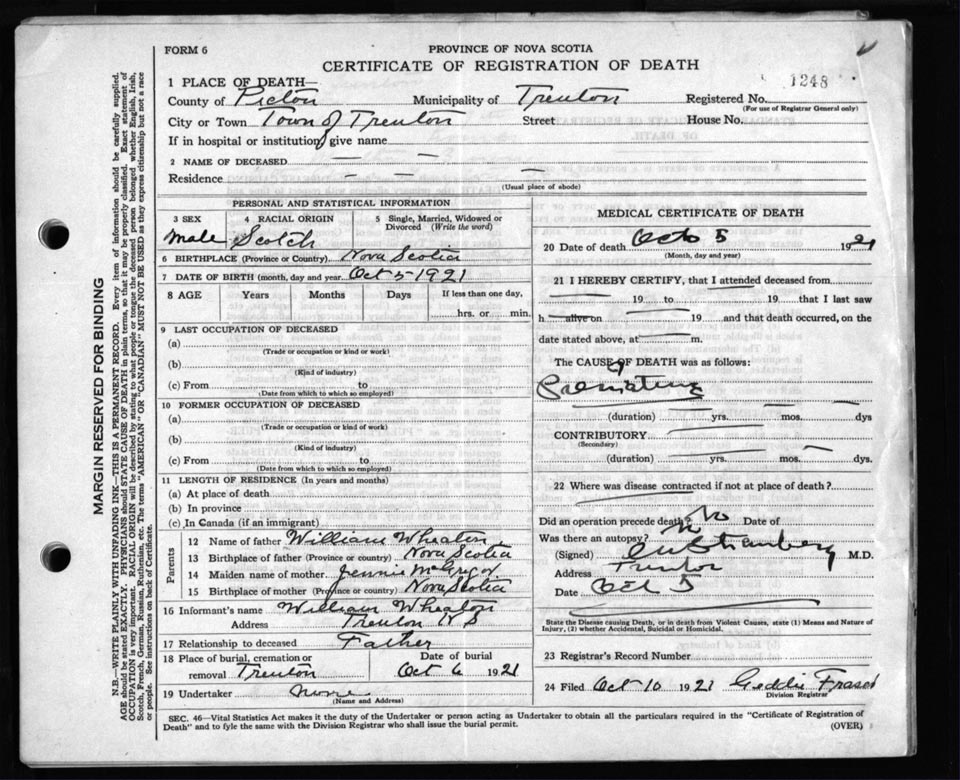 FORM 6
PROVINCE OF NOVA SCOTIA
CERTIFICATE OF REGISTRATION OF DEATH
1248
1 PLACE OF DEATH—
County of Pictou Municipality of Trenton Registered No.
(For use of Registrar General only)
City or Town Town of Trenton Street House No.
If in hospital or institution, give name
2 NAME OF DECEASED — —
Residence — — —
(Usual place of abode)
PERSONAL AND STATISTICAL INFORMATION
3 SEX 4 RACIAL ORIGIN 5 Single, Married, Widowed or Divorced (Write the word)
Male Scotch
6 BIRTHPLACE (Province or Country) Nova Scotia
7 DATE OF BIRTH (month, day and year) Oct 5-1921
8 AGE Years Months Days If less than one day,
hrs. or min.
9 LAST OCCUPATION OF DECEASED
(a)
(Trade or occupation or kind or work)
(b)
(Kind of industry)
(c) From to
(Date from which to which so employed)
10 FORMER OCCUPATION OF DECEASED
(a)
(Trade or occupation or kind of work)
(b)
(Kind of industry)
(c) From to
(Date from which to which employed)
11 LENGTH OF RESIDENCE (In years and months)
(a) At place of death
(b) In province
(c) In Canada (if an immigrant)
Parents
12 Name of father William Wheaton
13 Birthplace of father (Province or country) Nova Scotia
14 Maiden name of mother Jennie McGregor
15 Birthplace of mother (Province or country) Nova Scotia
16 Informant's name William Wheaton
Address Trenton N S
17 Relationship to deceased Father
18 Place of burial, cremation or removal Trenton Date of burial Oct 6 1921
19 Undertaker none
(Name and Address)
MEDICAL CERTIFICATE OF DEATH
20 Date of death Oct 5 1921
(Month, day and year)
21 I HEREBY CERTIFY, that I attended deceased from
19 to 19 that I last saw
h alive on 19 and that death occurred, on the
date stated above, at m.
The CAUSE OF DEATH was as follows:
(duration) yrs. mos. dys
CONTRIBUTORY
(Secondary)
(duration) yrs. mos. dys.
22 Where was disease contracted if not at place of death?
Did an operation precede death? No Date of
Was there an autopsy? No
(Signed) M.D.
Address Trenton
Date Oct 5
State the Disease causing Death, or in death from Violent Causes, state (1) Means and Nature of
Injury, (2) whether Accidental, Suicidal or Homicidal.
23 Registrar's Record Number
24 Filed Oct 10 1921 Fraser
Division Registrar
SEC. 46—Vital Statistics Act makes it the duty of the Undertaker or person acting as Undertaker to obtain all the particulars required in the "Certificate of Registration of
Death" and to fyle the same with the Division Registrar who shall issue the burial permit.
(OVER)
MARGIN RESERVED FOR BINDING
N.B.—WRITE PLAINLY WITH UNFADING INK—THIS IS A PERMANENT RECORD. Every item of information should be carefully supplied.
AGE should be stated EXACTLY. PHYSICIANS should STATE CAUSE OF DEATH in plain terms, so that it may be properly classified. Exact statement of
OCCUPATION is very important. RACIAL ORIGIN will be described by stating to what people or tongue the deceased person belonged whether English, Irish,
Scotch, French, German, Russian, Ruthenian, etc. The terms "AMERICAN" OR "CANADIAN" MUST NOT BE USED as they express citizenship but not a race
or people. See instructions on back of Certificate.